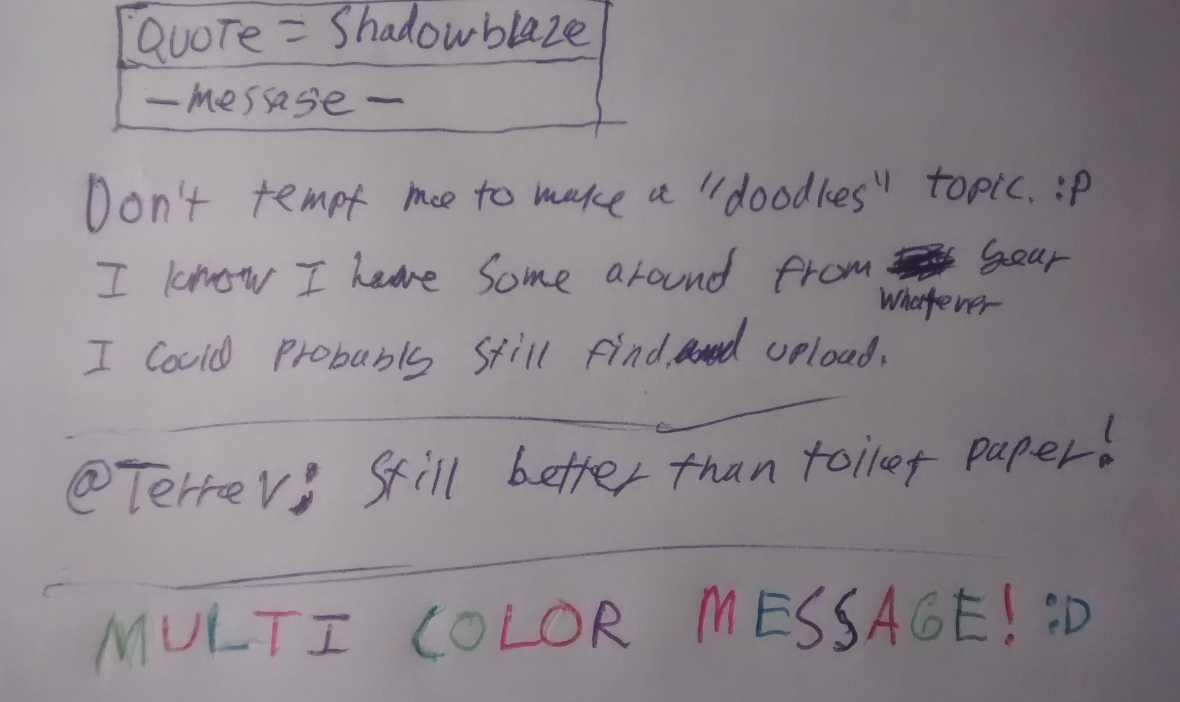 QUOTE = Shadowblaze
- message -
Don't tempt me to make a "doodles" topic. :P
I know I have some around from year
whatever
I could probably still find and upload.
@Terrev: Still better than toilet paper!
MULTI COLOR MESSAGE! :D